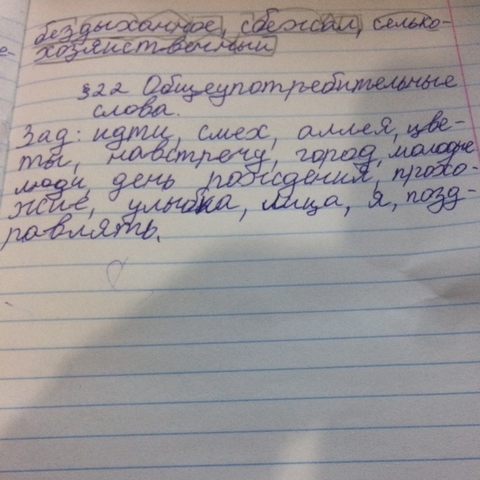 бездыханное, сбежал, селько-
хозяйственный
§22 Общеупотребительные
слова.
Зад: идти, смех, аллея, цве-
ты, навстречу, город, молодые
люди, день рождения, прохо-
жие, улыбка, лица, я, позд-
равлять.